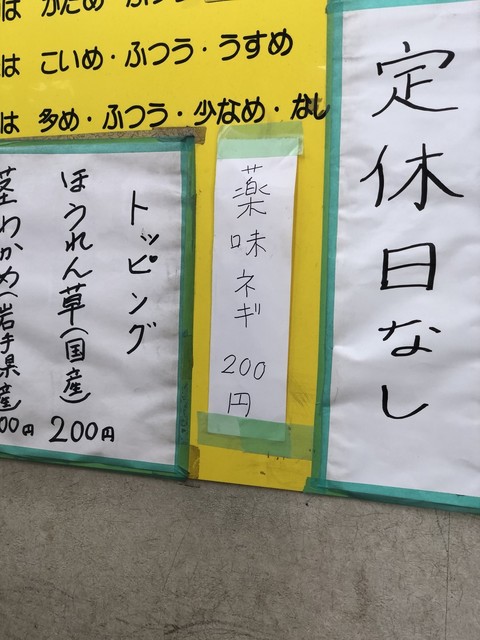 は かため・
は こいめ・ふつう・うすめ
は 多め・ふつう・少なめ・なし
定休日なし
薬味ネギ 200円
トッピング
ほうれん草(国産) 200円
茎わかめ(岩手県産) 00円